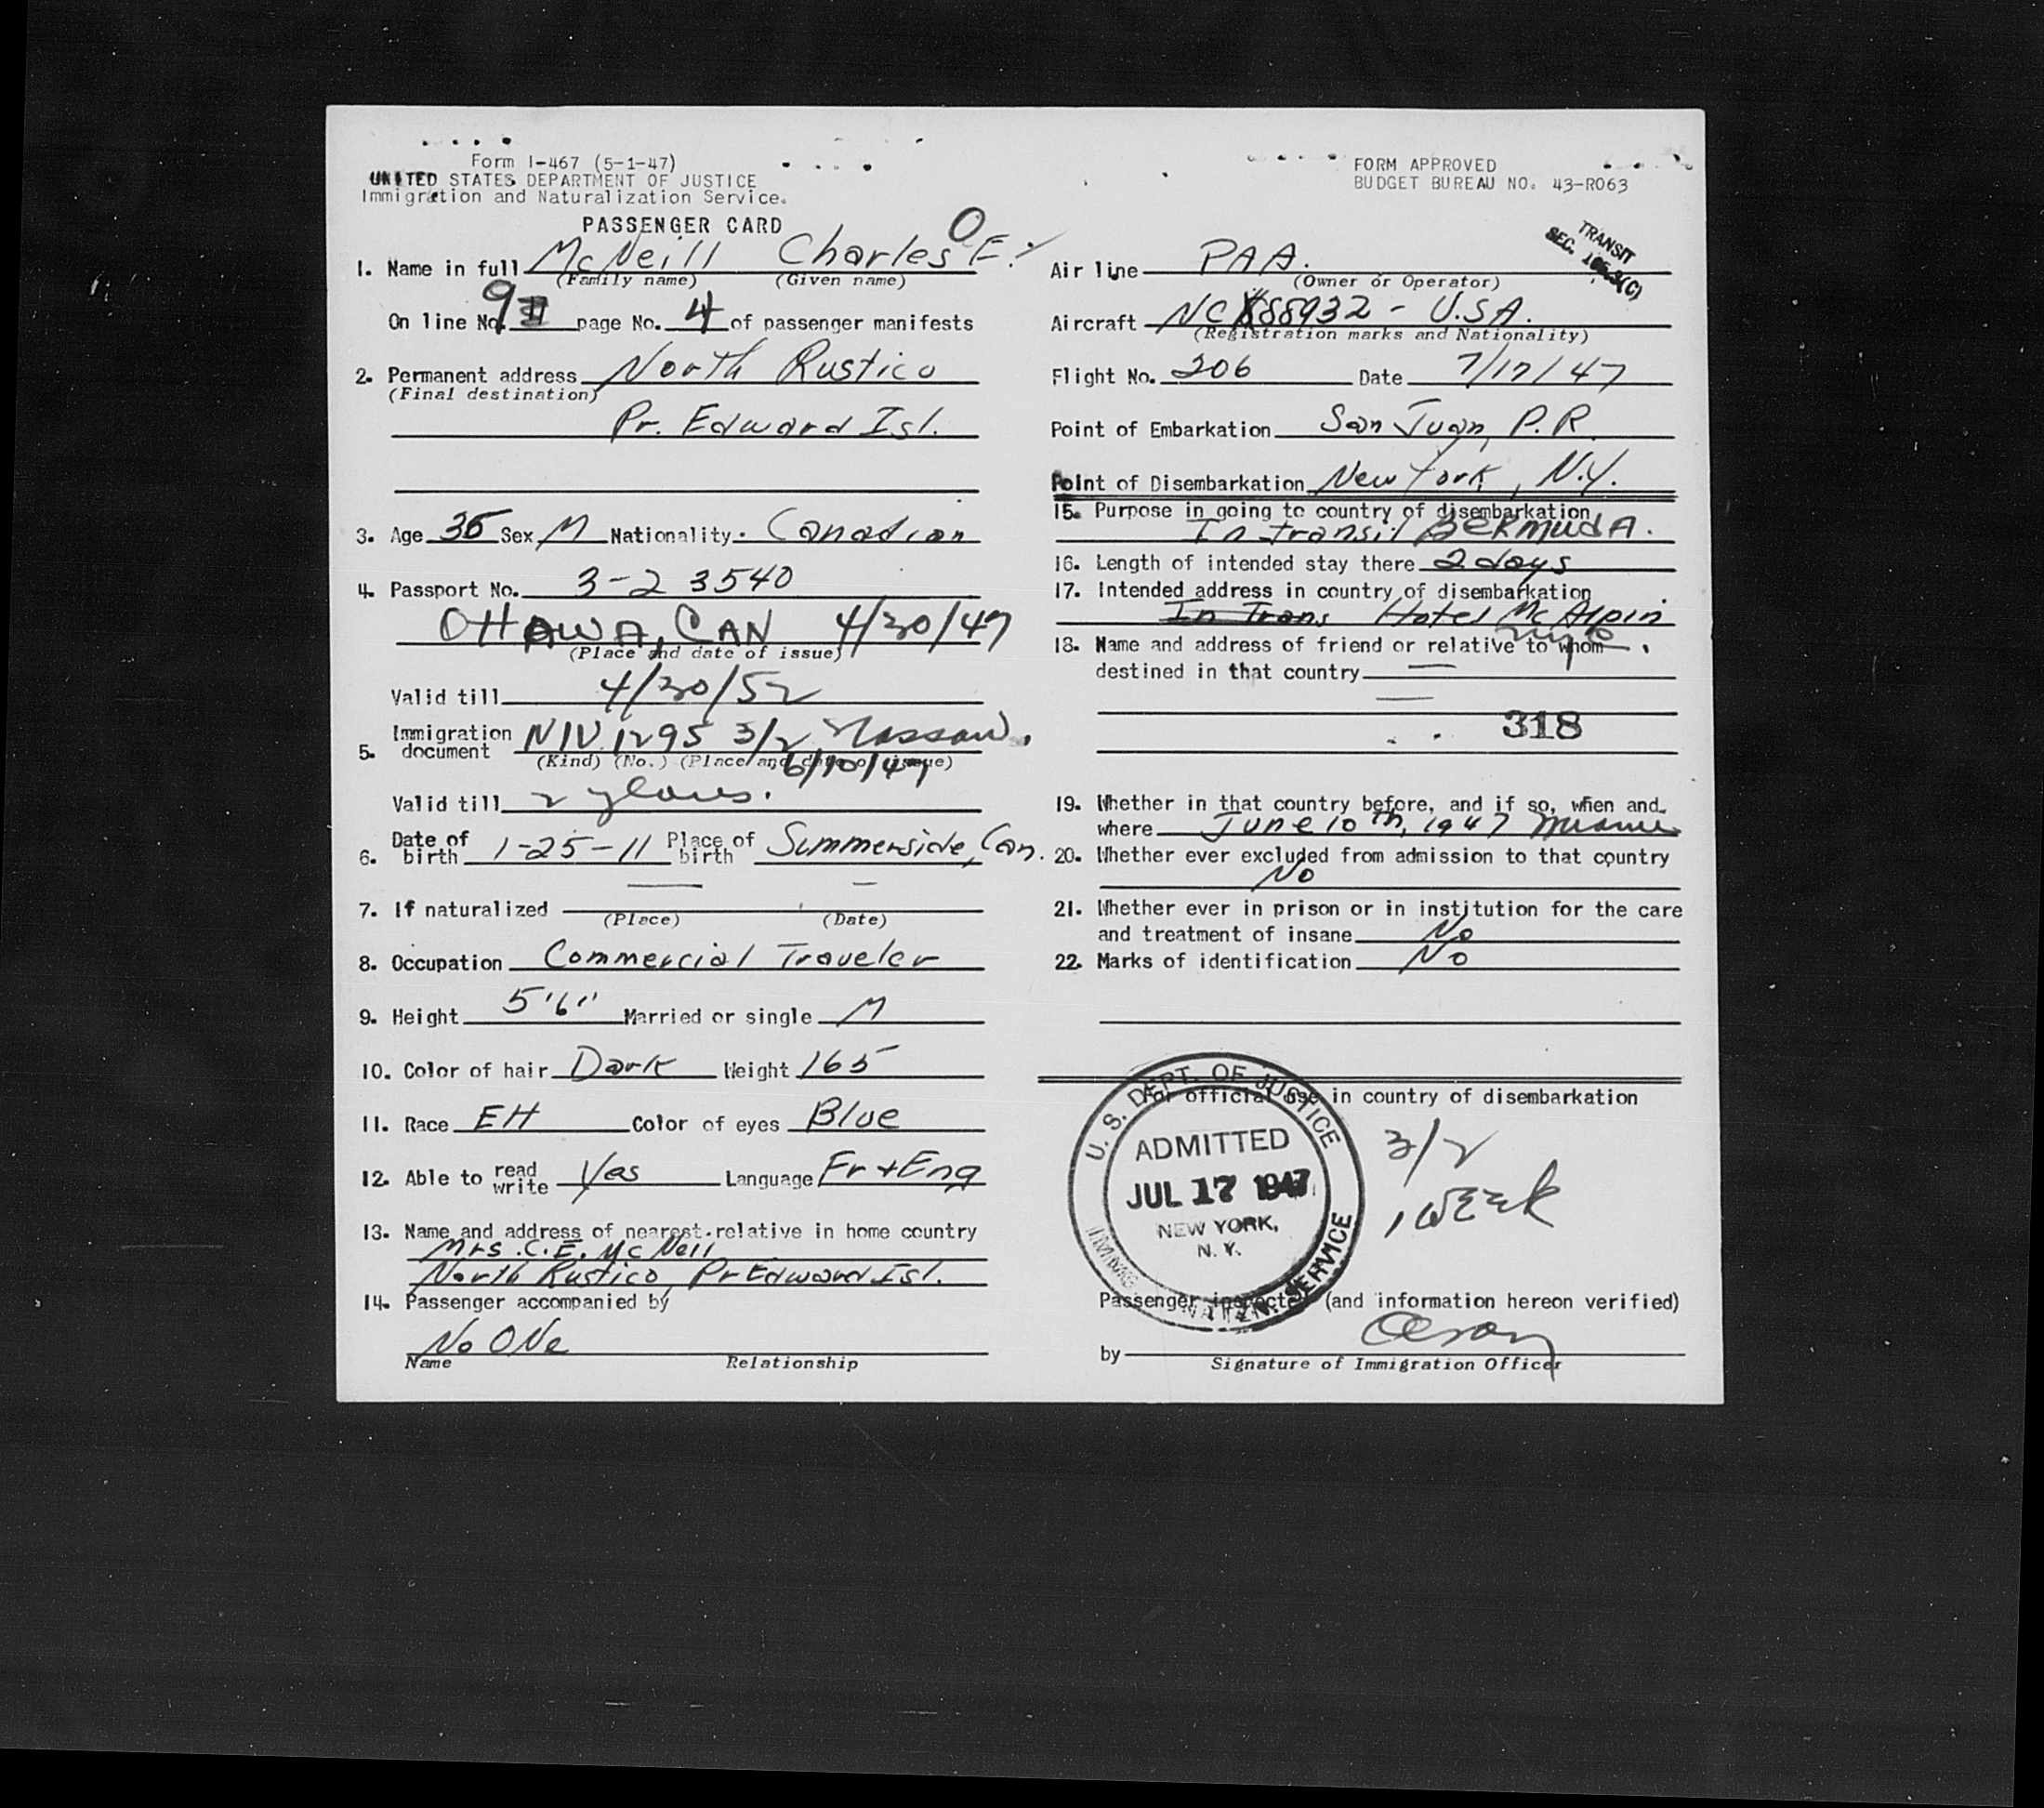 Form I-467 (5-1-47)
UNITED STATES DEPARTMENT OF JUSTICE
Immigration and Naturalization Service.
PASSENGER CARD
1. Name in full McNeill Charles E.
(Family name) (Given name)
On line No. 9 page No. 4 of passenger manifests
2. Permanent address North Rustico
(Final destination)
Pr. Edward Isl.
3. Age 36 Sex M Nationality Canadian
4. Passport No. 3-2 3540
OTTAWA, CAN 4/30/47
(Place and date of issue)
Valid till 4/30/52
5. Immigration document NIV 1295 3/2 Nassau.
(Kind) (No.) (Place and date of issue)
6/10/47
Valid till 2 years.
6. Date of birth 1-25-11 Place of birth Summerside, Can.
7. If naturalized
(Place) (Date)
8. Occupation Commercial Traveler
9. Height 5'6" Married or single M
10. Color of hair Dark Weight 165
11. Race EH Color of eyes Blue
12. Able to read write Yes Language Fr + Eng
13. Name and address of nearest relative in home country
Mrs. C. E. McNeil
North Rustico, Pr Edward Isl.
14. Passenger accompanied by
No ONe
Name Relationship
FORM APPROVED
BUDGET BUREAU NO. 43-R063
TRANSIT
SEC.
Air line PAA.
(Owner or Operator)
Aircraft NC 88932 - U.S.A.
(Registration marks and Nationality)
Flight No. 206 Date 7/17/47
Point of Embarkation San Juan, P.R.
Point of Disembarkation New York, N.Y.
15. Purpose in going to country of disembarkation
In transit BERMUDA.
16. Length of intended stay there 2 days
17. Intended address in country of disembarkation
In Trans Hotel McAlpin
18. Name and address of friend or relative to whom
destined in that country
318
19. Whether in that country before, and if so, when and
where June 10th, 1947 Miami
20. Whether ever excluded from admission to that country
No
21. Whether ever in prison or in institution for the care
and treatment of insane No
22. Marks of identification No
For official use in country of disembarkation
U.S. DEPT. OF JUSTICE
ADMITTED
JUL 17 1947
NEW YORK,
N. Y.
SERVICE
3/2
1 WEEK
Passenger inspected (and information hereon verified)
by
Signature of Immigration Officer